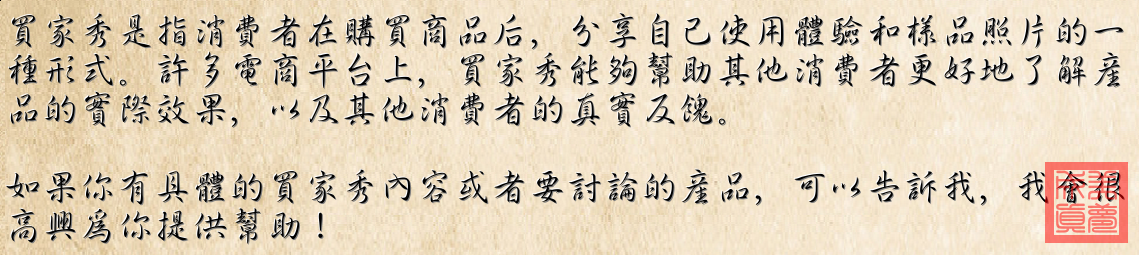 買家秀是指消費者在購買商品后，分享自己使用體驗和樣品照片的一
種形式。許多電商平台上，買家秀能夠幫助其他消費者更好地了解産
品的實際效果，以及其他消費者的真實反餽。
如果你有具體的買家秀內容或者要討論的産品，可以告訴我，我會很
高興爲你提供幫助！